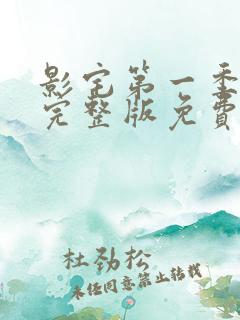 影宅第一季
完整版免费
杜劲松
未经同意禁止转载